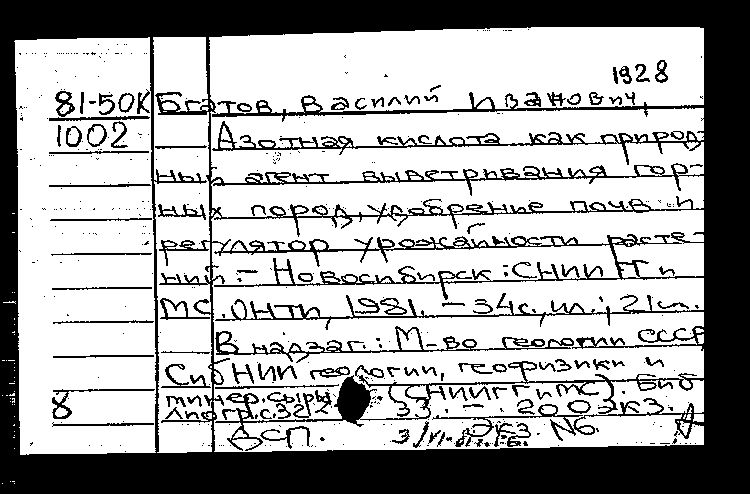 1928
81-50К Бгатов, Василий Иванович,
1002 Азотная кислота как природ-
ный агент выветривания гор-
ных пород, удобрение почв и
регулятор урожайности расте-
ний. - Новосибирск: СНИИГГи
МС. ОНТИ, 1981. - 34с., ил.; 21см.
В надзаг.: М-во геологии СССР,
СибНИИ геологии, геофизики и
8 минер. сырья (СНИИГГиМС). Биб
лиогр.: с. 32 33. - 200 экз.
БСП. Экз. №6.